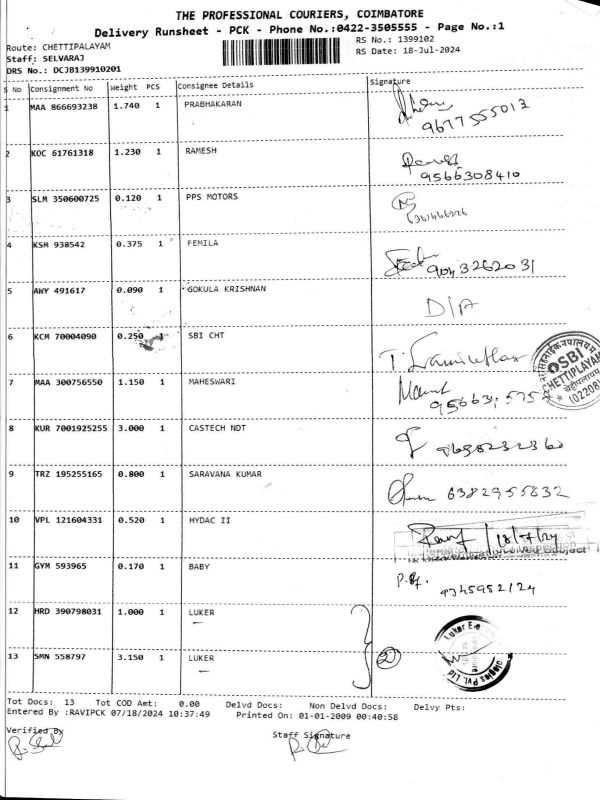 THE PROFESSIONAL COURIERS, COIMBATORE
Delivery Runsheet - PCK - Phone No.:0422-3505555 - Page No.:1
Route: CHETTIPALAYAM RS No.: 1399102
Staff: SELVARAJ RS Date: 18-Jul-2024
DRS No.: DCJB139910201
S No Consignment No Weight PCS Consignee Details Signature
1 MAA 866693238 1.740 1 PRABHAKARAN
9677555013
2 KOC 61761318 1.230 1 RAMESH
9566308410
3 SLM 350600725 0.120 1 PPS MOTORS
4 KSM 938542 0.375 1 FEMILA
9043262031
5 AWY 491617 0.090 1 GOKULA KRISHNAN
D/A
6 KCM 70004090 0.250 1 SBI CHT
SBI
7 MAA 300756550 1.150 1 MAHESWARI
8 KUR 7001925255 3.000 1 CASTECH NDT
9 TRZ 195255165 0.800 1 SARAVANA KUMAR
6382955832
10 VPL 121604331 0.520 1 HYDAC II
18/7/24
11 GYM 593965 0.170 1 BABY
9345952124
12 HRD 390798031 1.000 1 LUKER
13 SMN 558797 3.150 1 LUKER
2
Tot Docs: 13 Tot COD Amt: 0.00 Delvd Docs: Non Delvd Docs: Delvy Pts:
Entered By :RAVIPCK 07/18/2024 10:37:49 Printed On: 01-01-2009 00:40:58
Verified By Staff Signature